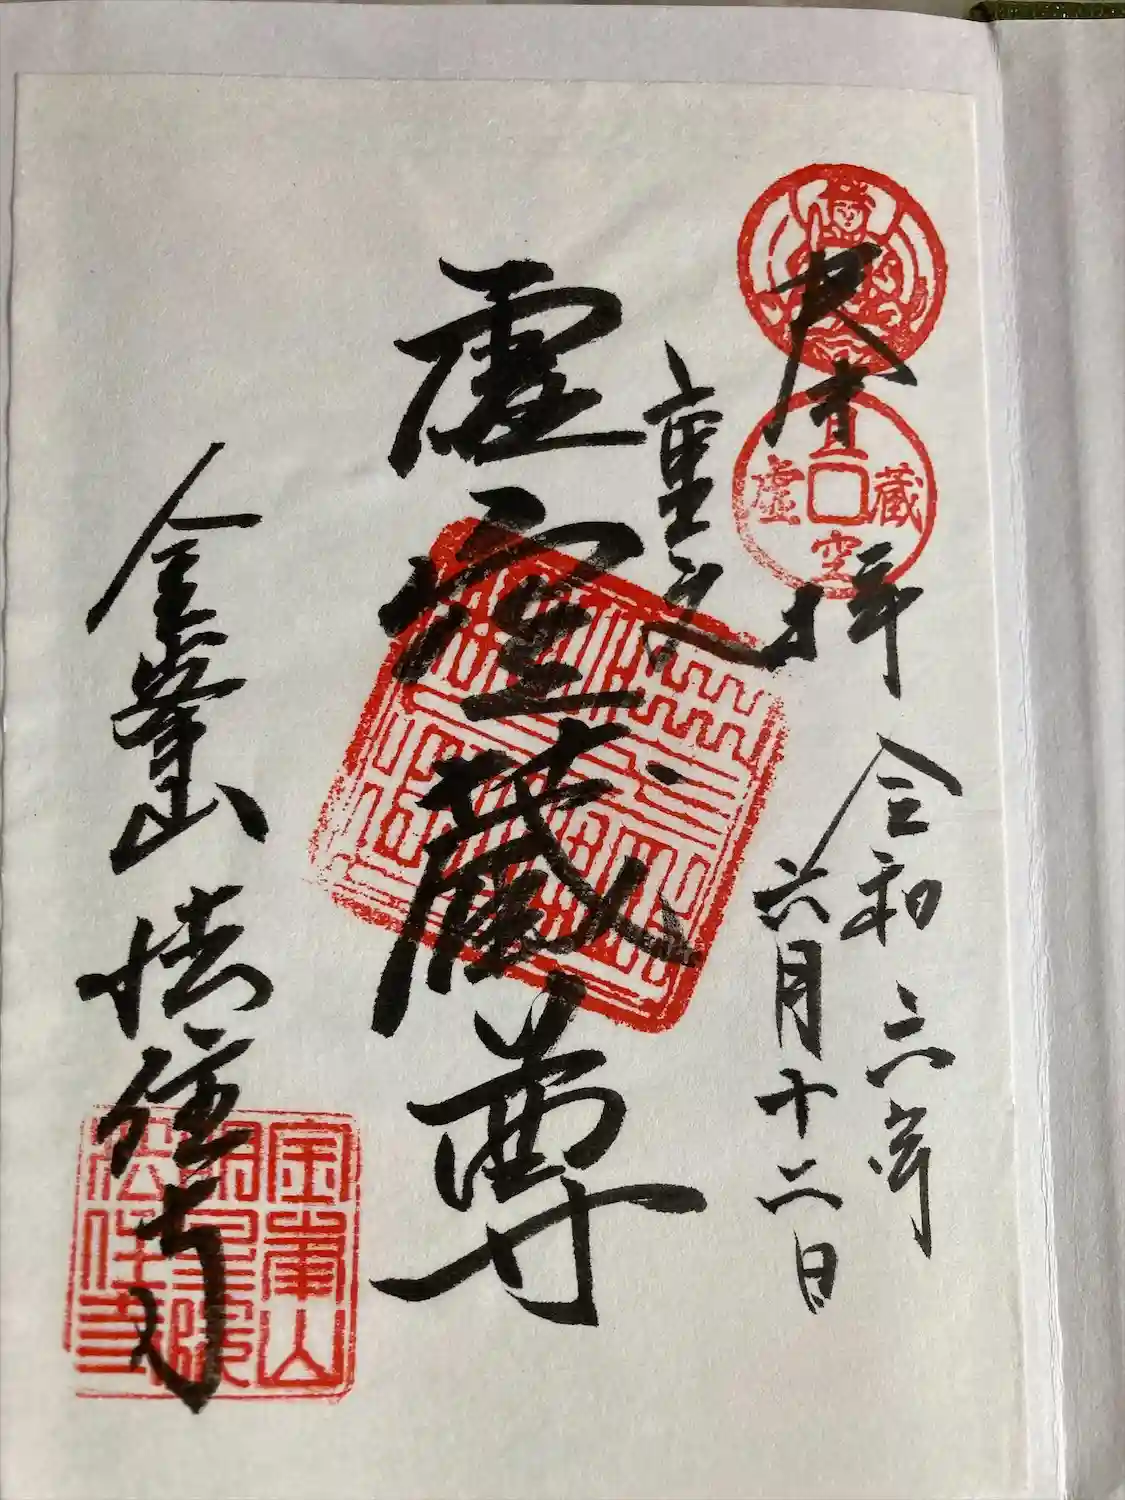 拝
令和六年
六月十二日
重文
虚空蔵尊
金峯山法住寺
虚空蔵
金峯山
明星院
法住寺